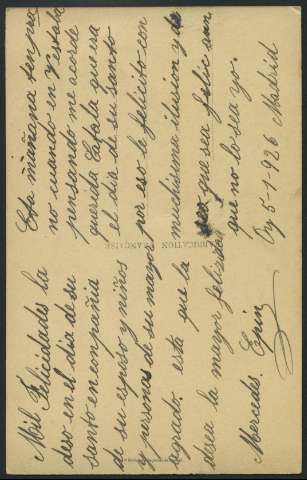 Mil Felicidades la
deso en el dia de su
santo en conpañia
de su esposo y niños
y personas de su mayor
agrado. esta que la
desea la mayor felicidad
Mercedes.
FABRICATION FRANÇAISE
Esta mañana tenpra
no cuando en V estaba
pensando me acorde
querida Catala que era
el dia de su santo
por eso le felicito con
muchisima ilusion y de
que sea feliz aun
que no lo sea yo.
Oy 5-1-926 Madrid